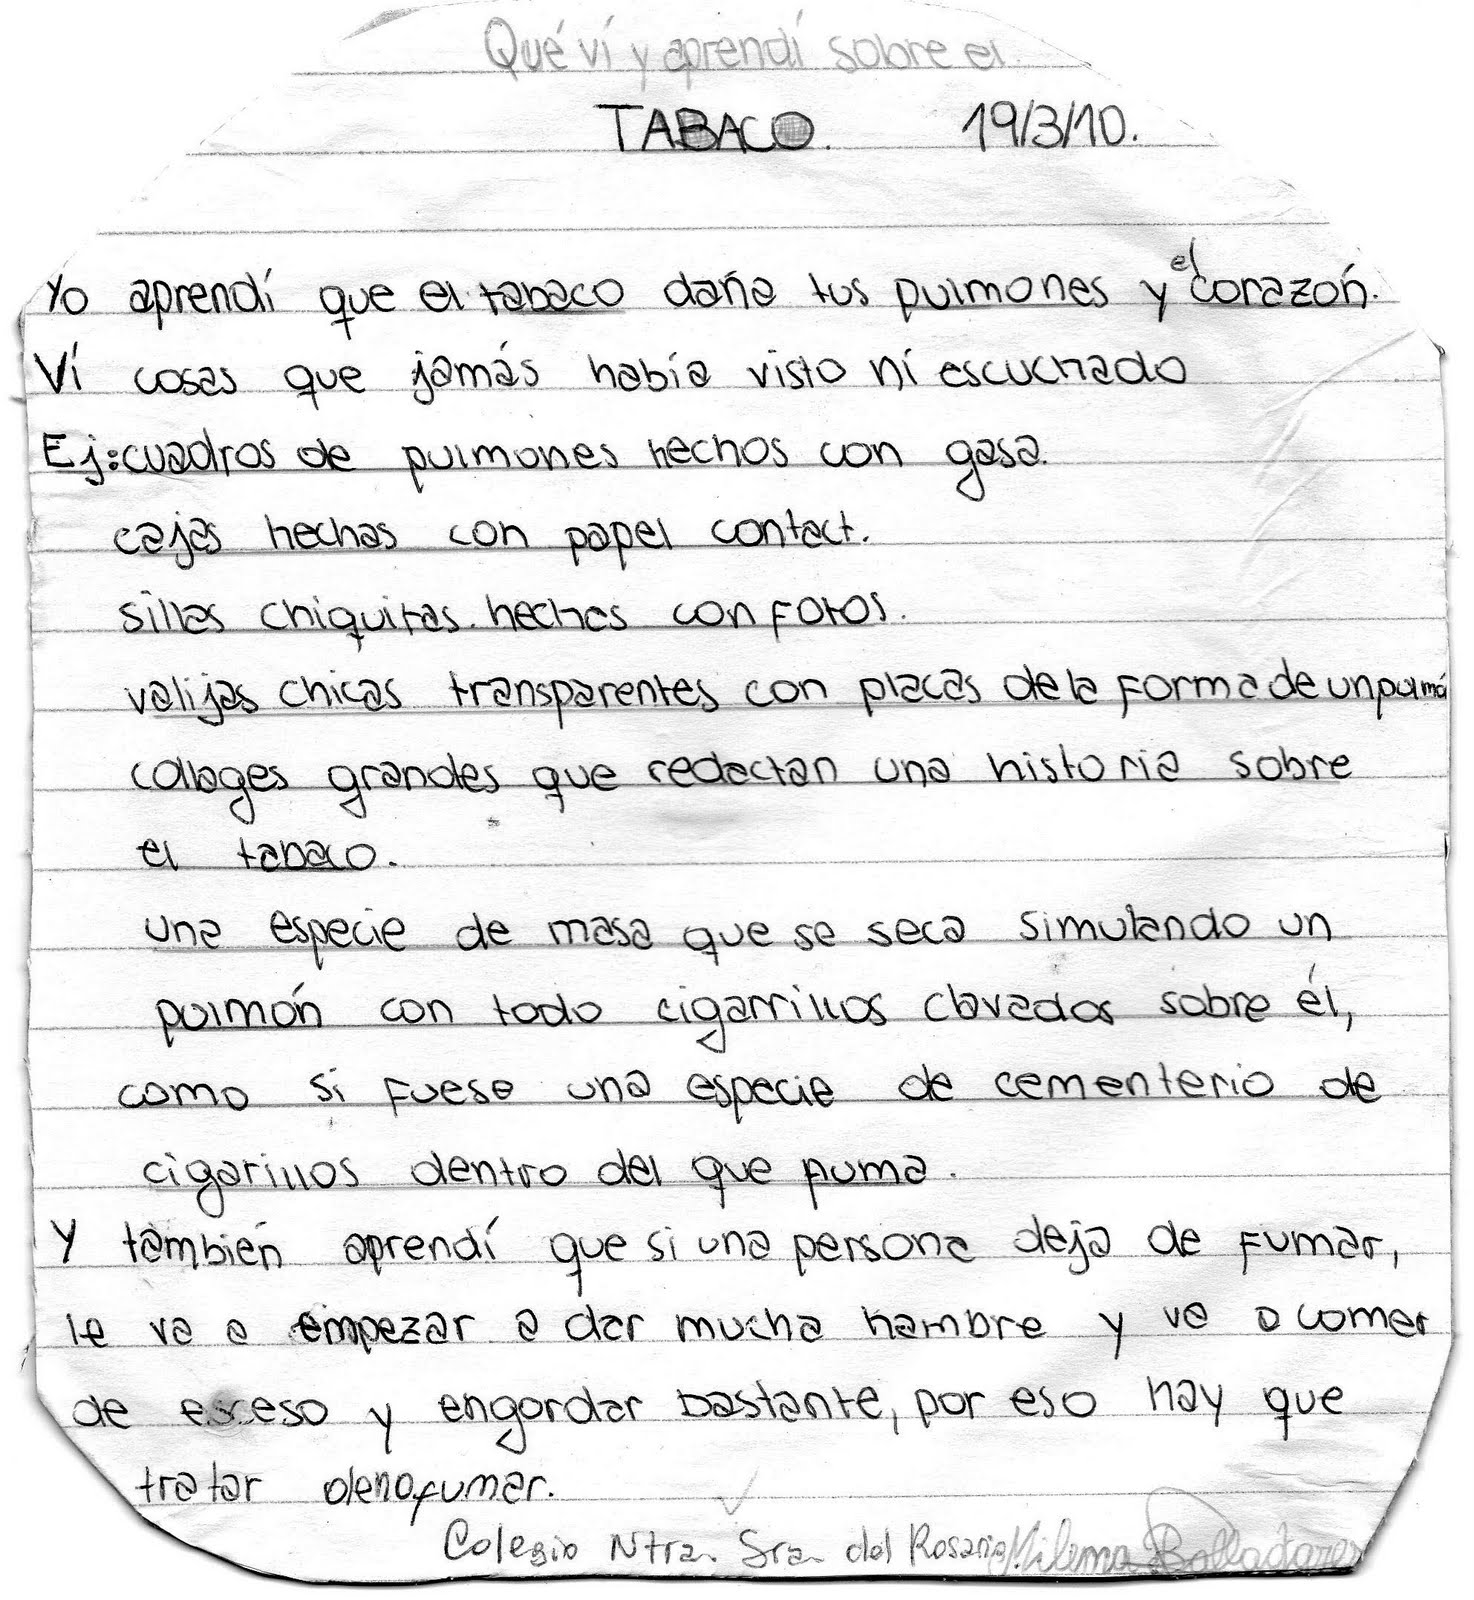 Qué ví y aprendí sobre el
TABACO. 19/3/10.
Yo aprendí que el tabaco daña tus pulmones y el corazón.
Ví cosas que jamás había visto ni escuchado
Ej: cuadros de pulmones hechos con gasa.
cajas hechas con papel contact.
sillas chiquitas hechas con fotos.
valijas chicas transparentes con placas de la forma de un pulmó
collages grandes que redactan una historia sobre
el tabaco.
una especie de masa que se seca simulando un
pulmón con todo cigarrillos clavados sobre él,
como si fuese una especie de cementerio de
cigarillos dentro del que fuma.
Y también aprendí que si una persona deja de fumar,
le va a empezar a dar mucha hambre y va a comer
de esceso y engordar bastante, por eso hay que
tratar de no fumar.
Colegio Ntra. Sra. del Rosario. Milena Balladares